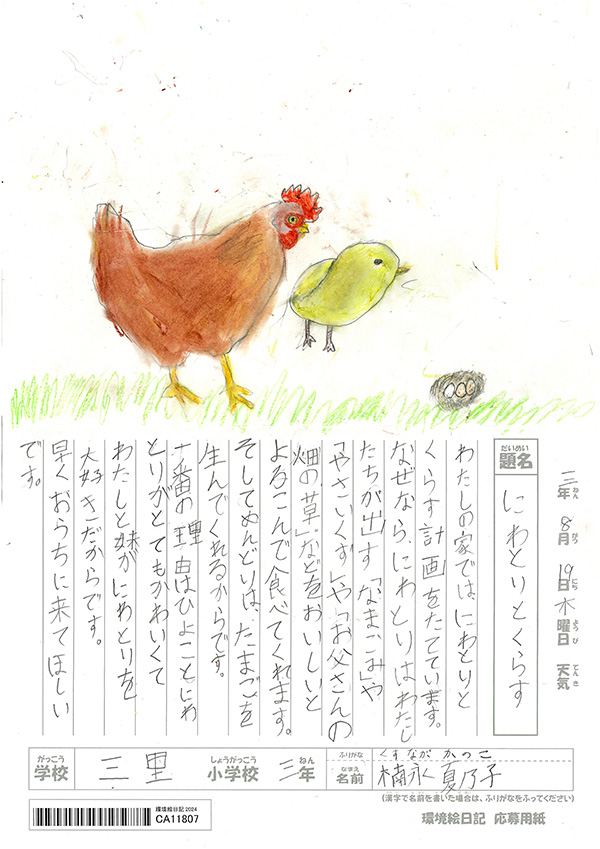 三年 8月 19日 木曜日 天気
ねん がつ にち ようび てんき
だいめい
題名 にわとりとくらす
わたしの家では、にわとりと
くらす計画をたてています。
なぜなら、にわとりはわたし
たちが出す「なまごみ」や
「やさいくず」や「お父さんの
畑の草」などをおいしいと
よろこんで食べてくれます。
そしてめんどりは、たまごを
生んでくれるからです。
一番の理由はひよことにわ
とりがとてもかわいくて
わたしと妹がにわとりを
大好きだからです。
早くおうちに来てほしい
です。
がっこう しょうがっこう ねん
学校 三里 小学校 三年
ふりがな くすなが かのこ
なまえ
名前 楠永 夏乃子
(漢字で名前を書いた場合は、ふりがなをふってください)
環境絵日記2024
CA11807
環境絵日記 応募用紙